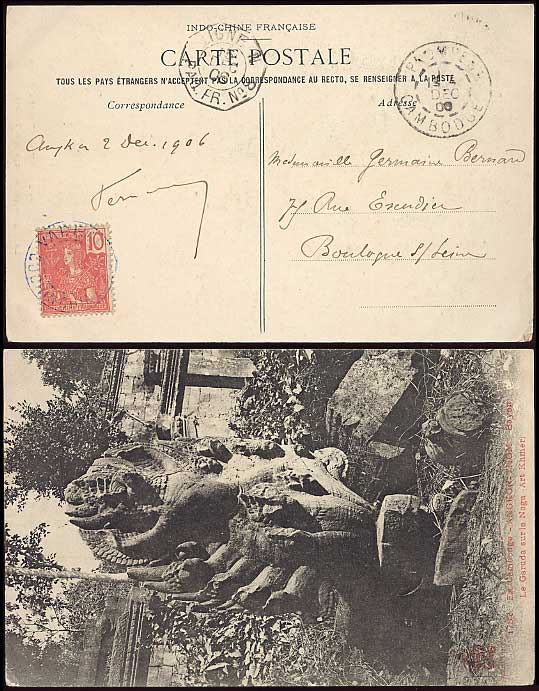 INDO-CHINE FRANÇAISE
CARTE POSTALE
TOUS LES PAYS ÉTRANGERS N'ACCEPTENT PAS LA CORRESPONDANCE AU RECTO, SE RENSEIGNER A LA POSTE
Correspondance
Adresse
LIGNE
PAQ. FR. Nº 8
DEC
CAMBODGE
Angkor 2 Dec. 1906
Mademoiselle Germaine Bernard
75 Rue Escudier
Boulogne s/Seine
10
Cambodge - ANGKOR-THOM
Le Garuda sur le Naga (Art Khmer)